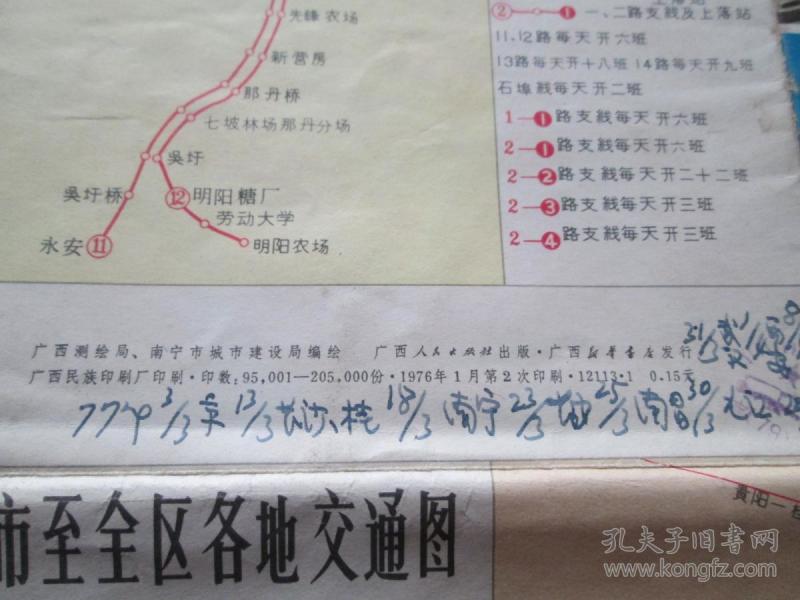 先鋒农场
新营房
那丹桥
七坡林场那丹分场
吳圩
吳圩桥
⑫明阳糖厂
劳动大学
永安⑪
明阳农场
②—❶一、二路支綫及上落站
11、12路每天开六班
13路每天开十八班 14路每天开九班
石埠綫每天开二班
1—❶路支綫每天开六班
2—❶路支綫每天开六班
2—❷路支綫每天开二十二班
2—❸路支綫每天开三班
2—❹路支綫每天开三班
广西测绘局、南宁市城市建设局编绘 广西人民出版社出版·广西新华书店发行
广西民族印刷厂印刷·印数:95,001—205,000份·1976年1月第2次印刷·12113·1 0.15元
77年3/3京13/3长沙、桂18/3南宁23/3 25/3南昌30/3九江
31/3
市至全区各地交通图
貴阳—桂
孔夫子旧書网
www.kongfz.com